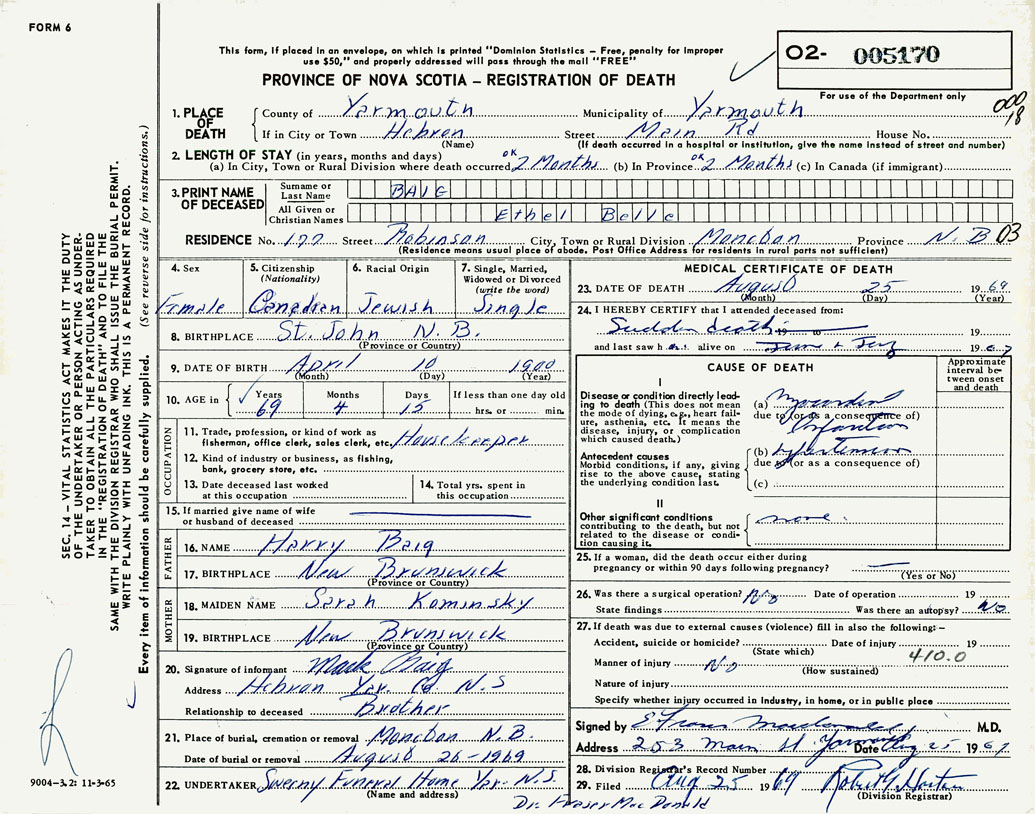 FORM 6
This form, if placed in an envelope, on which is printed "Dominion Statistics – Free, penalty for improper
use $50," and properly addressed will pass through the mail "FREE"
PROVINCE OF NOVA SCOTIA – REGISTRATION OF DEATH
O2- 005170
For use of the Department only
000
18
SEC. 14 – VITAL STATISTICS ACT MAKES IT THE DUTY
OF THE UNDERTAKER OR PERSON ACTING AS UNDER-
TAKER TO OBTAIN ALL THE PARTICULARS REQUIRED
IN THE "REGISTRATION OF DEATH" AND TO FILE THE
SAME WITH THE DIVISION REGISTRAR WHO SHALL ISSUE THE BURIAL PERMIT.
WRITE PLAINLY WITH UNFADING INK. THIS IS A PERMANENT RECORD.
Every item of information should be carefully supplied. (See reverse side for instructions.)
1. PLACE OF DEATH
County of Yarmouth Municipality of Yarmouth
If in City or Town Hebron Street Main Rd House No.
(Name) (If death occurred in a hospital or institution, give the name instead of street and number)
2. LENGTH OF STAY (in years, months and days)
(a) In City, Town or Rural Division where death occurred OK 2 Months (b) In Province OK 2 Months (c) In Canada (if immigrant)
3. PRINT NAME OF DECEASED
Surname or Last Name BAIG
All Given or Christian Names Ethel Belle
RESIDENCE No. 177 Street Robinson City, Town or Rural Division Moncton Province N.B 03
(Residence means usual place of abode. Post Office Address for residents in rural parts not sufficient)
4. Sex Female
5. Citizenship (Nationality) Canadian
6. Racial Origin Jewish
7. Single, Married, Widowed or Divorced (write the word) Single
8. BIRTHPLACE St. John N.B.
(Province or Country)
9. DATE OF BIRTH April 10 1900
(Month) (Day) (Year)
10. AGE in Years 69 Months 4 Days 15 If less than one day old hrs. or min.
OCCUPATION
11. Trade, profession, or kind of work as
fisherman, office clerk, sales clerk, etc. Housekeeper
12. Kind of industry or business, as fishing,
bank, grocery store, etc.
13. Date deceased last worked
at this occupation
14. Total yrs. spent in
this occupation
15. If married give name of wife
or husband of deceased
FATHER
16. NAME Harry Baig
17. BIRTHPLACE New Brunswick
(Province or Country)
MOTHER
18. MAIDEN NAME Sarah Kominsky
19. BIRTHPLACE New Brunswick
(Province or Country)
20. Signature of informant Mark Baig
Address Hebron Yar. Co. N.S
Relationship to deceased Brother
21. Place of burial, cremation or removal Moncton N.B.
Date of burial or removal August 26-1969
22. UNDERTAKER Sweeny Funeral Home Yar. N.S.
(Name and address)
MEDICAL CERTIFICATE OF DEATH
23. DATE OF DEATH August 25 1969
(Month) (Day) (Year)
24. I HEREBY CERTIFY that I attended deceased from:
Sudden death 19 to 19
and last saw h alive on 196
CAUSE OF DEATH
Approximate interval between onset and death
I
Disease or condition directly lead-
ing to death (This does not mean
the mode of dying, e.g., heart fail-
ure, asthenia, etc. It means the
disease, injury, or complication
which caused death.)
(a) Myocardial
due to (or as a consequence of)
Infarction
Antecedent causes
Morbid conditions, if any, giving
rise to the above cause, stating
the underlying condition last.
(b) hypertension
due to (or as a consequence of)
(c)
II
Other significant conditions
contributing to the death, but not
related to the disease or condi-
tion causing it.
none.
25. If a woman, did the death occur either during
pregnancy or within 90 days following pregnancy?
(Yes or No)
26. Was there a surgical operation? No Date of operation 19
State findings Was there an autopsy? No
27. If death was due to external causes (violence) fill in also the following: –
Accident, suicide or homicide? Date of injury 19
(State which) 410.0
Manner of injury No
(How sustained)
Nature of injury
Specify whether injury occurred in industry, in home, or in public place
Signed by M.D.
Address 253 Main St Yarmouth Date Aug 25 1969
28. Division Registrar's Record Number
29. Filed Aug 25 1969 Robert G Horton
(Division Registrar)
Dr. Fraser MacDonald
9004–3.2: 11-3-65